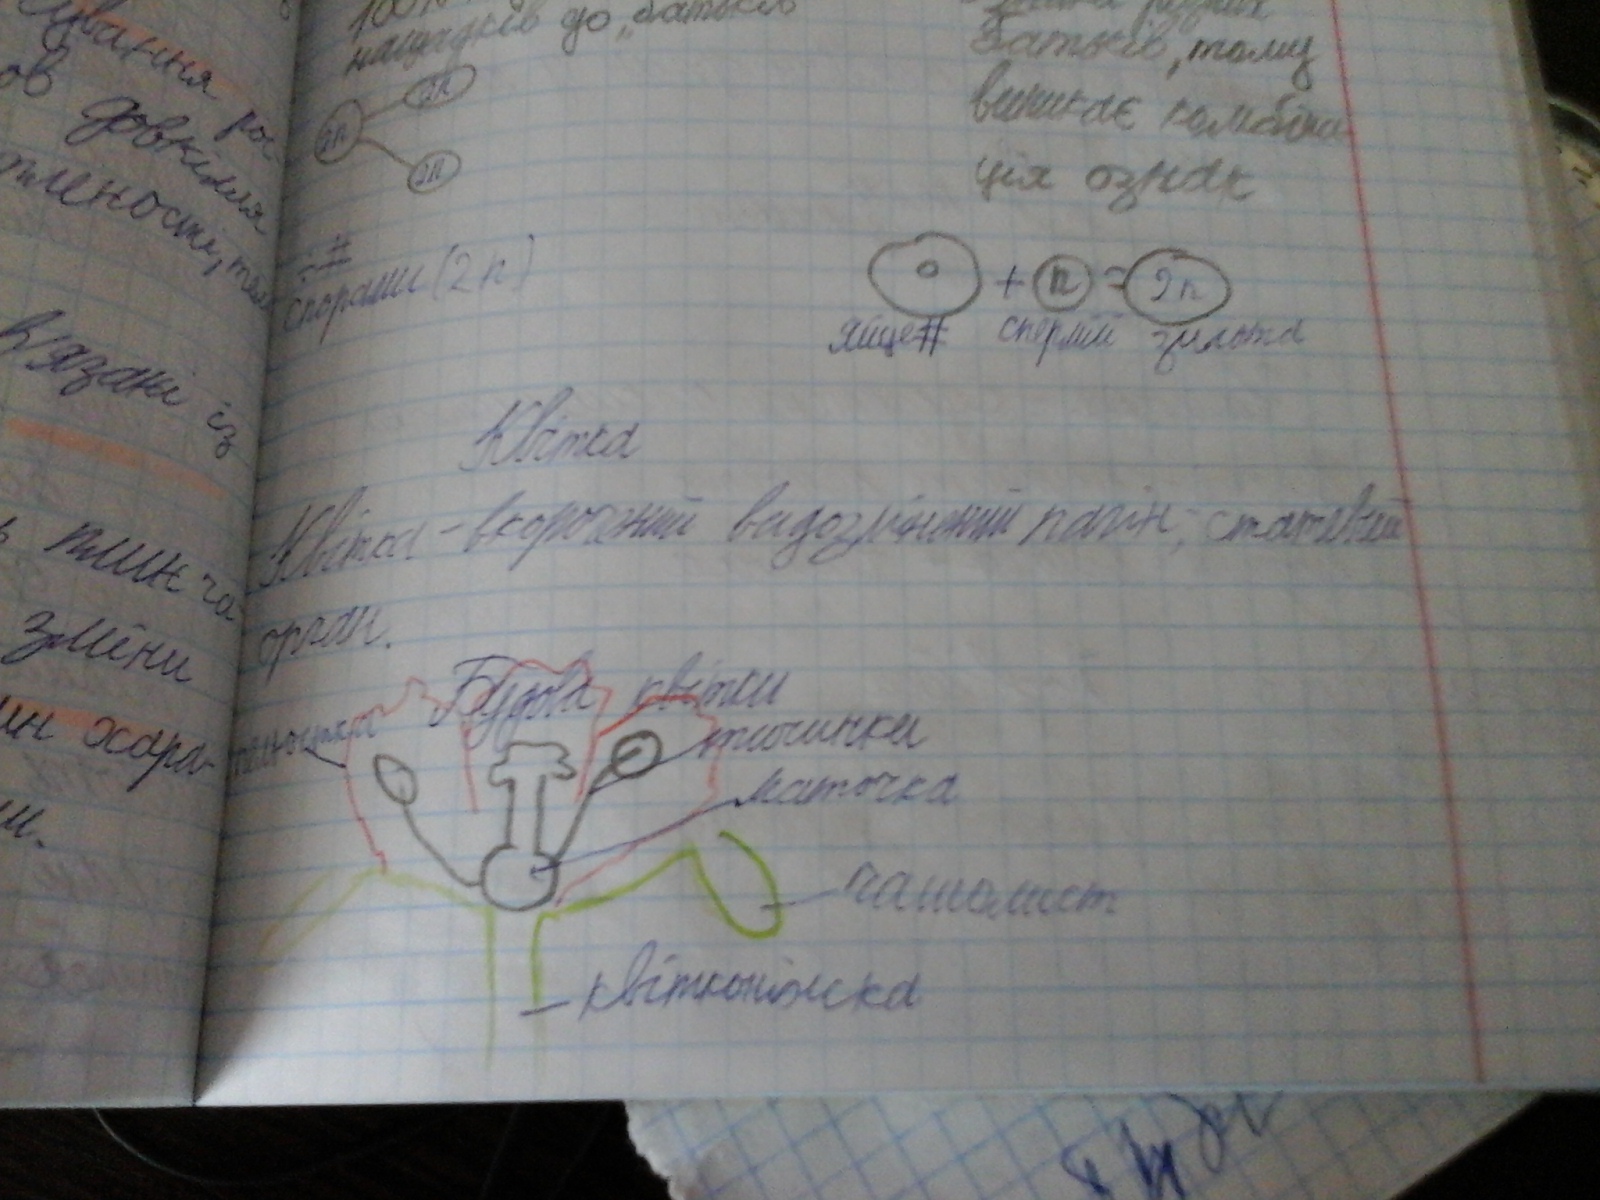 ування рос
ов довкілля
в'язані із
зміни
ин хара-
100%
нащадків до „батьків
2n
2n
2n
спорами (2n)
різних
батьків, тому
виникає комбіна
ція ознак
+ n = 2n
яйце# спермій зигота
Квітка
Квітка - вкорочений видозмінений пагін, статевий
орган.
Будова квітки
пелюстка
тичинка
маточка
чашолист
квітконіжка